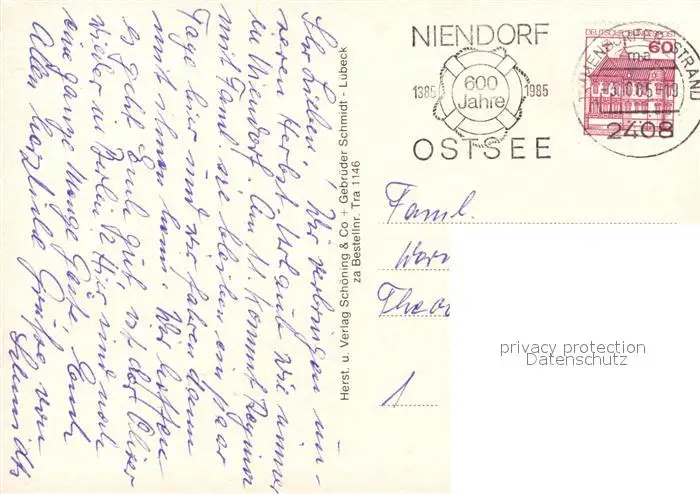 Ihr Lieben, Wir verbringen un-
seren Herbst-Urlaub wie immer
in Niendorf. Am 11. kommt
mit Fam. sie bleiben ein paar
Tage hier und wir fahren dann
mit ihnen heim. Wir hoffen
es geht Euch gut, ist der Oliver
wieder in Berlin? Hier sind noch
eine ganze Menge Gäste, Euch
Allen herzliche Grüße von
Schmidts
Herst. u. Verlag Schöning & Co + Gebrüder Schmidt - Lübeck
za Bestellnr. Tra 1146
NIENDORF
1385 600 Jahre 1985
OSTSEE
DEUTSCHE BUNDESPOST
60
STRAND
ma
2408
Famil.
Theo
1
privacy protection
Datenschutz